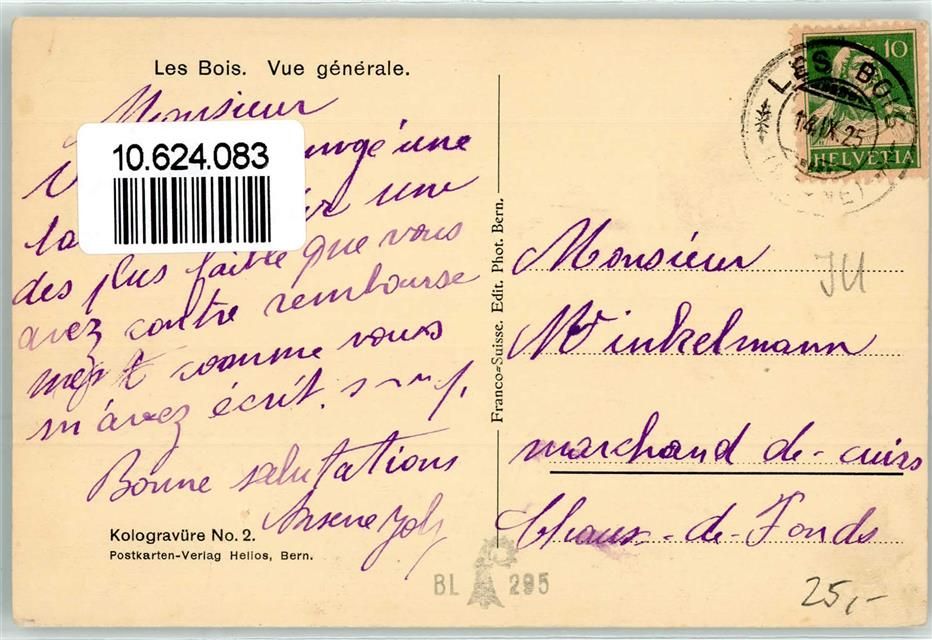 Les Bois. Vue générale.
Monsieur
10.624.083
une
une
des plus faible que vous
avez contre rembourse
ment comme vous
m'avez écrit.
Bonne salutations
Arsene
Kologravüre No. 2.
Postkarten-Verlag Helios, Bern.
Franco-Suisse. Edit. Phot. Bern.
BL 295
10
HELVETIA
LES BOIS
14.IX.25
JU
Monsieur
Winkelmann
marchand de-cuirs
Chaux-de-Fonds
25,-